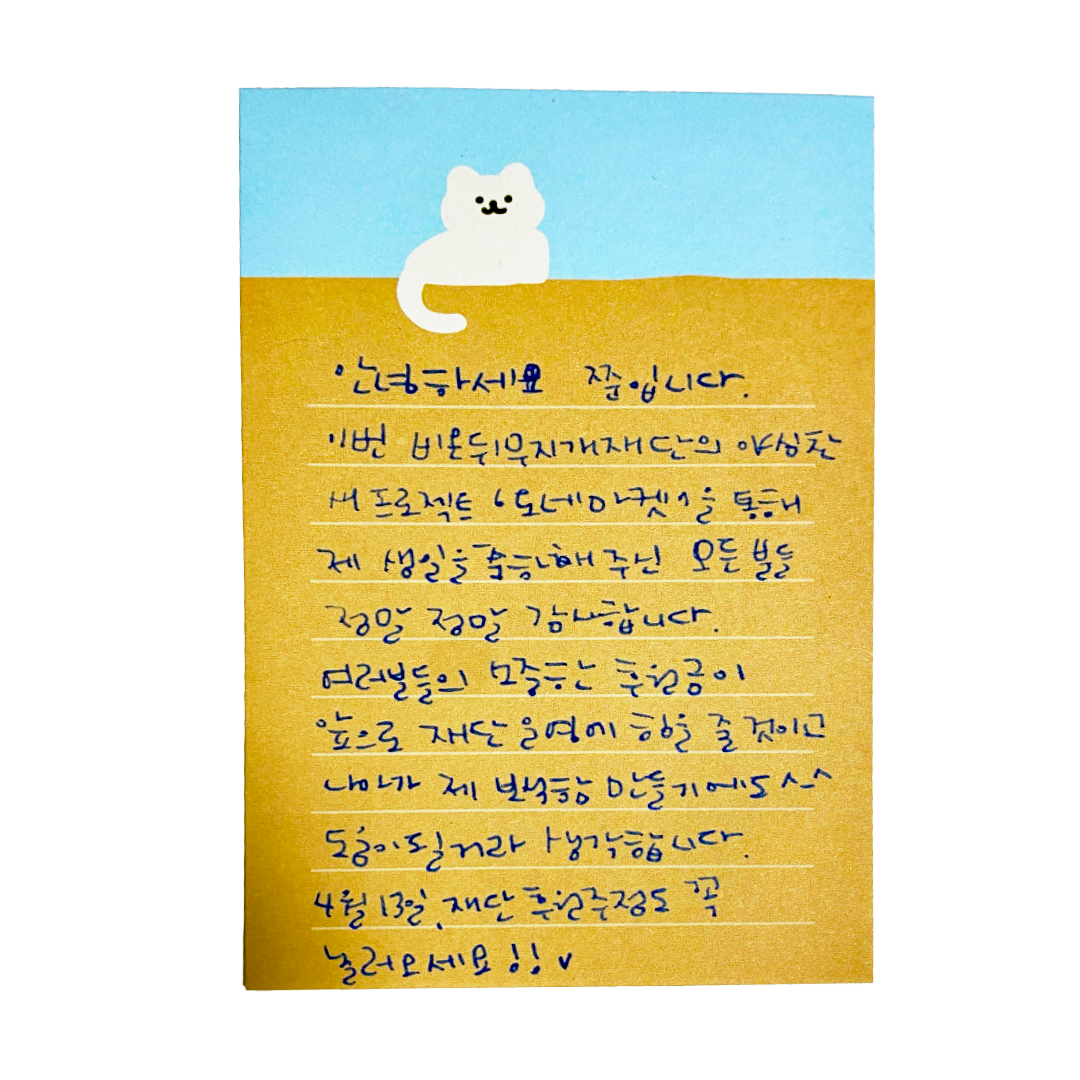 안녕하세요 쭌입니다.
이번 비온뒤무지개재단의 야심찬
새 프로젝트 '도네마켓'을 통해
제 생일을 축하해 주신 모든 분들
정말 정말 감사합니다.
여러분들의 모든 후원금이
앞으로 재단 운영에 힘을 줄 것이고
나아가 제 만들기에도 ^_^
도움이 될거라 생각합니다.
4월 13일, 재단 후원주점도 꼭
놀러오세요!! v